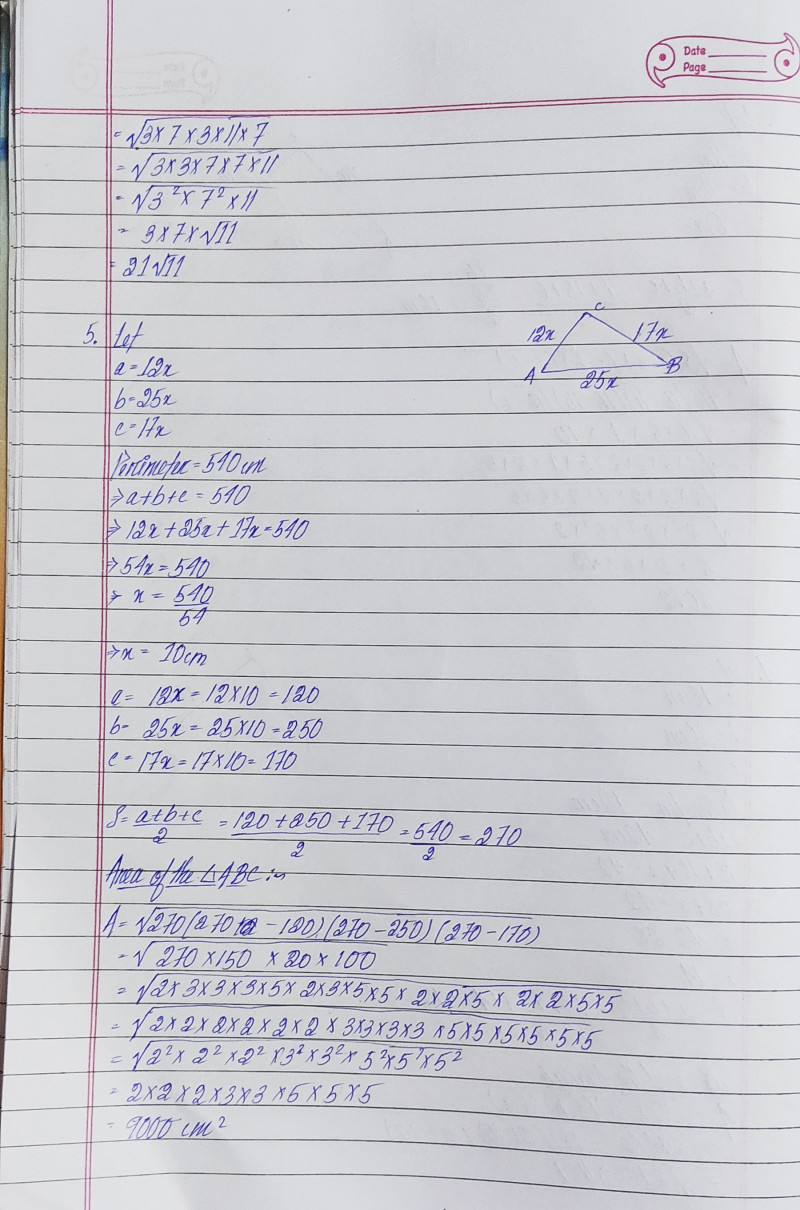 Date
Page
= √3×7×3×11×7
= √3×3×7×7×11
= √3²×7²×11
= 3×7×√11
= 21√11
5. Let
a=12x
b=25x
c=17x
C
12x
17x
A
B
25x
Perimeter=540cm
⇒a+b+c = 540
⇒ 12x+25x+17x=540
⇒ 54x=540
⇒ x = 540/54
⇒x = 10cm
a= 12x = 12×10 = 120
b= 25x = 25×10 = 250
c= 17x = 17×10= 170
S= a+b+c/2 = 120+250+170/2 = 540/2 = 270
Area of the △ABC:-
A= √270(270-120)(270-250)(270-170)
= √270×150×20×100
= √2×3×3×3×5×2×3×5×5×2×2×5×2×2×5×5
= √2×2×2×2×2×2×3×3×3×3×5×5×5×5×5×5
= √2²×2²×2²×3²×3²×5²×5²×5²
= 2×2×2×3×3×5×5×5
= 9000 cm²